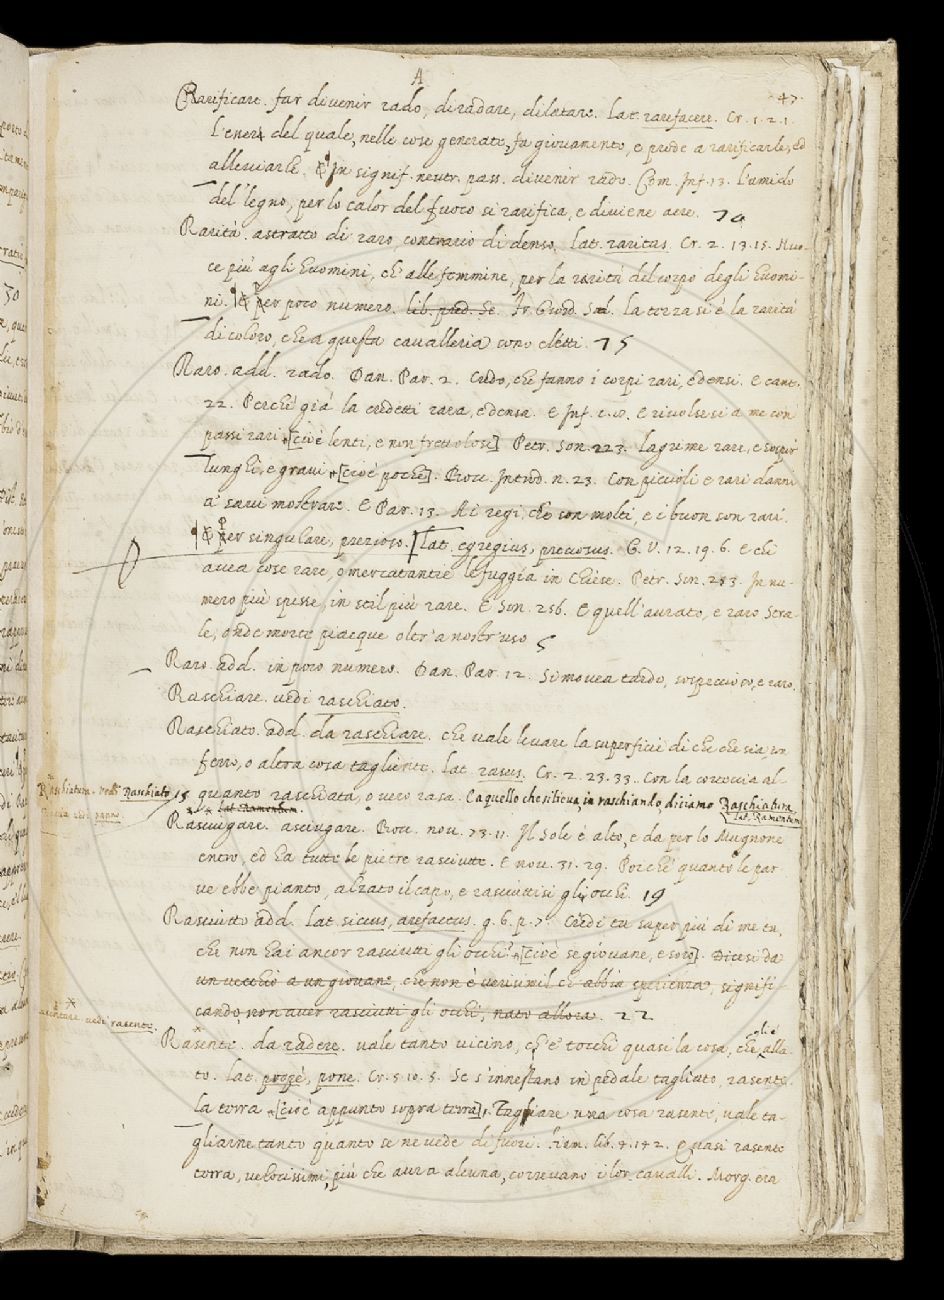 A
47.
Rarificare. far divenir rado, diradare, dilatare. Lat. rarefacere. Cr. 1. 2. 1.
L'ener del quale, nelle cose generate, fa giovamento, e prode a rarificarle, ed
alleviarle. ¶ In signif. neutr. pass. divenir rado. Com. Inf. 13. L'amido
del legno, per lo calor del fuoco si rarifica, e diviene aere. 74
Rarità. astratto di raro, contrario di denso, lat. raritas. Cr. 2. 13. 15. Nuo-
ce più agli huomini, ch' alle femmine, per la rarità del corpo degli huomi-
ni. ¶ per poco numero. lib. pred. Sc. Fr. Giord. Sal. la terza si è la rarità
di coloro, che a questa cavalleria sono eletti. 75
Raro. add. rado. Dan. Par. 2. Credo, che fanno i corpi rari, e densi. E cant.
22. Perchè già la credetti rara, e densa. E Inf. c. 8. e rivolsesi a me con
passi rari [cioè lenti, e non frevolosi] Petr. Son. 223. lagrime rare, e sospir
lunghi, e gravi [cioè poche]. Bocc. Introd. n. 23. Con piccioli e rari danni
a' savi mostrare. E Par. 13. Ai regi, che son molti, e i buon son rari.
¶ per singulare, prezioso. Lat. egregius, preciosus. G. V. 12. 19. 6. E chi
avea cose rare, o mercatantie le fuggia in Chiese. Petr. Son. 253. In nu-
mero più spesse, in stil più rare. E Son. 256. E quell' aurato, e raro stra-
le, onde morte piacque oltr' a nostr' uso 5
Raro. add. in poco numero. Dan. Par. 12. Si movea tardo, sospeccioso, e raro.
Raschiare. vedi raschiato.
Raschiato. add. da raschiare. che vale levare la superficie di che che sia, con
ferro, o altra cosa tagliente. Lat. rasus. Cr. 2. 23. 33. Con la corteccia al-
Raschiatura. vedi Raschiato 15 quanto raschiata, o vero rasa. E a quello che si lieva, in raschiando, diciamo Raschiatura
lat. Ramentum. lat. Ramentum
Rasciugare. asciugare. Bocc. nov. 73. 11. Il Sole è alto, e da per lo Mugnone
entro, ed ha tutte le pietre rasciutte. E nov. 31. 29. Poichè quanto le par-
ve ebbe pianto, alzato il capo, e rasciuttisi gli occhi. 19
Rasciutto add. Lat. siccus, arefactus. g. 6. p. 7. Credi tu saper più di me tu,
che non hai ancor rasciutti gli occhi [cioè se giovane, e soro]. Dicesi da
un vecchio a un giovane, che non è verisimil ch' abbia sperienza, signifi-
cando, non aver rasciutti gli occhi, nato allora. 22
vedi rasente.
Rasente. da radere. vale tanto vicino, ch' e' tocchi quasi la cosa, che gli è alla-
to. Lat. propè, pone. Cr. 5. 10. 5. Se s'innestano in pedale tagliato, rasente
la terra [cioè appunto sopra terra]. Tagliare una cosa rasente, vale ta-
gliarne tanto quanto se ne vede di fuori. Firem. lib. 4. 142. Quasi rasente
terra, velocissimi, più che aura alcuna, correvano i lor cavalli. Morg. era